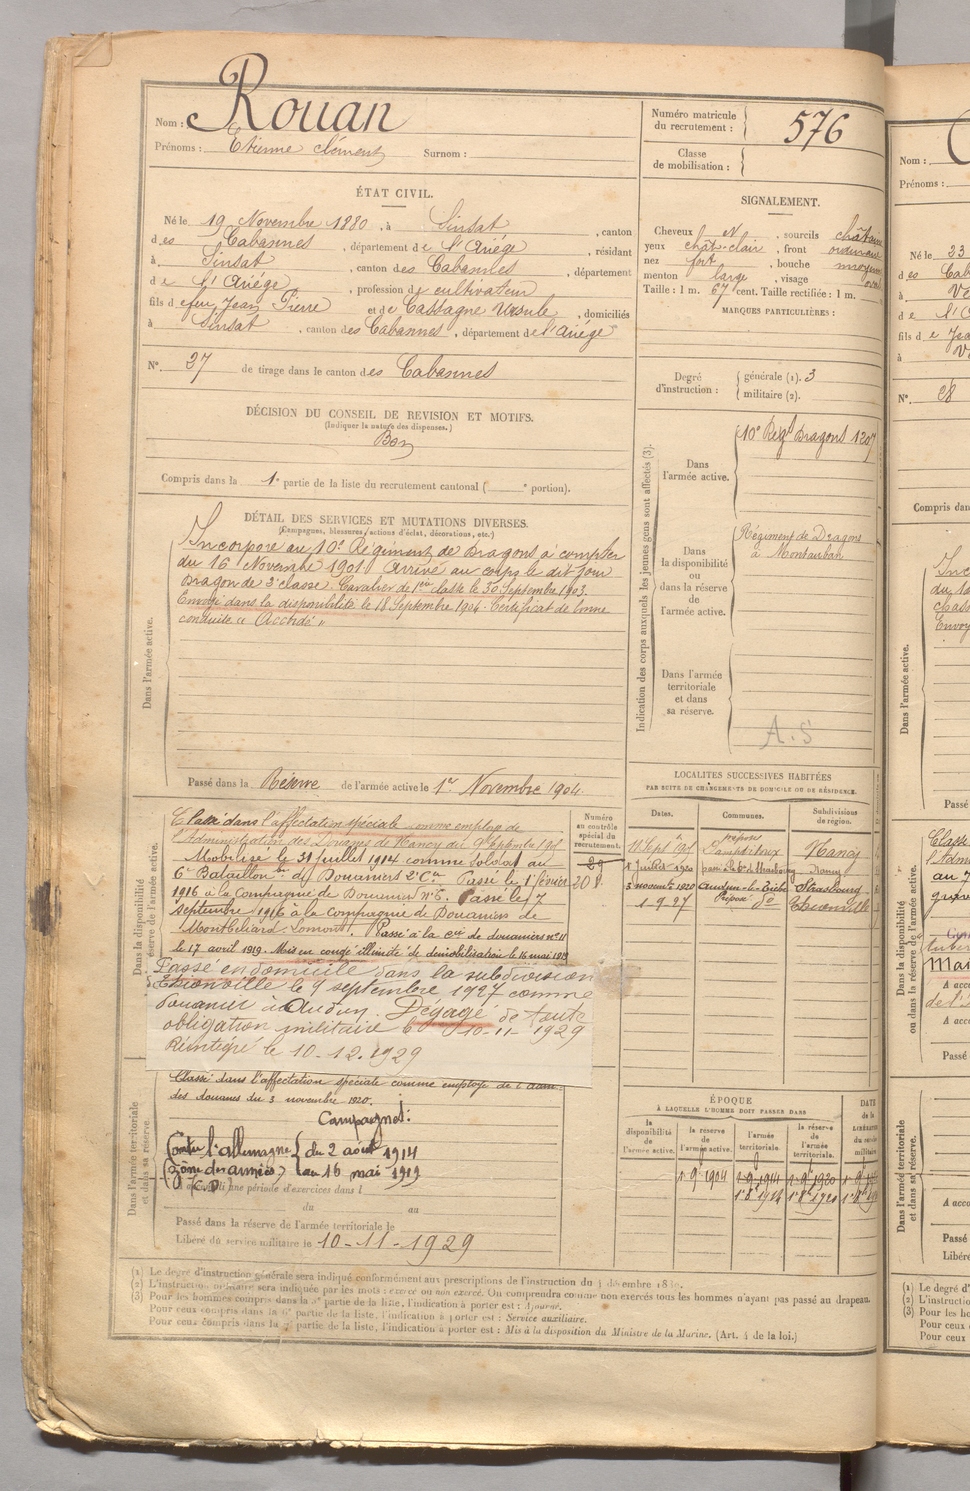 Nom : Rouan
Prénoms : Etienne Clément Surnom :
Numéro matricule du recrutement : 576
Classe de mobilisation :
ÉTAT CIVIL.
Né le 19 Novembre 1880, à Sinsat, canton
des Cabannes, département de l'Ariège, résidant
à Sinsat, canton des Cabannes, département
de l'Ariège, profession de cultivateur
fils de feu Jean Pierre et de Cassagne Ursule, domiciliés
à Sinsat, canton des Cabannes, département de l'Ariège
N° 27 de tirage dans le canton des Cabannes
DÉCISION DU CONSEIL DE REVISION ET MOTIFS.
(Indiquer la nature des dispenses.)
Bon
Compris dans la 1e partie de la liste du recrutement cantonal ( e portion).
SIGNALEMENT.
Cheveux N, sourcils châtains
yeux chât-clair, front ordinaire
nez fort, bouche moyenne
menton large, visage oval
Taille : 1 m. 67 cent. Taille rectifiée : 1 m.
MARQUES PARTICULIÈRES :
Degré d'instruction :
générale (1). 3
militaire (2).
DÉTAIL DES SERVICES ET MUTATIONS DIVERSES.
(Campagnes, blessures, actions d'éclat, décorations, etc.)
Dans l'armée active.
Incorporé au 10e Régiment de Dragons à compter
du 16 Novembre 1901 arrivé au corps le dit jour
Dragon de 2e classe. Cavalier de 1ère classe le 30 Septembre 1903.
Envoyé dans la disponibilité le 18 Septembre 1904. Certificat de bonne
conduite "Accordé"
Passé dans la Réserve de l'armée active le 1er Novembre 1904
Indication des corps auxquels les jeunes gens sont affectés (3).
Dans l'armée active.
10e Régt Dragons 1207
Dans la disponibilité ou dans la réserve de l'armée active.
Régiment de Dragons
à Montauban
Dans l'armée territoriale et dans sa réserve.
A.S
Dans la disponibilité
réserve de l'armée active.
Classé dans l'affectation spéciale comme employé de
l'Administration des Douanes de Nancy du 9 Septembre 190
Mobilisé le 31 juillet 1914 comme soldat au
6e Bataillon de Douaniers 2e Cie Passé le 1er février
1916 à la Compagnie de Douaniers n° 6. Passé le 7
septembre 1916 à la Compagnie de Douaniers de
Montbéliard Lomont. Passé à la Cie de douaniers n° 11
le 17 avril 1919. Mis en congé illimité de démobilisation le 16 mai 1919
Passé en domicile dans la subdivision
Thionville le 9 septembre 1927 comme
Douanier à Audun. Dégagé de toute
obligation militaire le 10-11-1929
Réintégré le 10.12.1929
Numéro au contrôle spécial du recrutement.
208
LOCALITÉS SUCCESSIVES HABITÉES
PAR SUITE DE CHANGEMENTS DE DOMICILE OU DE RÉSIDENCE.
Dates. Communes. Subdivisions de région.
préposé
Nancy
1 Juillet 1920
3 novembre 1920 Audun-le-Tiche Strasbourg
1927 Préposé do Thionville
Dans l'armée territoriale et dans sa réserve.
Classé dans l'affectation spéciale comme employé de l'adm.
des douanes du 3 novembre 1920.
Campagnes :
Contre l'allemagne du 2 août 1914
(Zône des armées) au 16 mai 1919
(C.D)
une période d'exercices dans l
du au
Passé dans la réserve de l'armée territoriale le
Libéré du service militaire le 10-11-1929
ÉPOQUE
À LAQUELLE L'HOMME DOIT PASSER DANS
la disponibilité de l'armée active.
la réserve de l'armée active.
l'armée territoriale.
la réserve de l'armée territoriale.
DATE de la LIBÉRATION du service militaire
1 9 1904 1 9 1914 1 9 1920
(1) Le degré d'instruction générale sera indiqué conformément aux prescriptions de l'instruction du 4 décembre 1889.
(2) L'instruction militaire sera indiquée par les mots : exercé ou non exercé. On comprendra comme non exercés tous les hommes n'ayant pas passé au drapeau.
(3) Pour les hommes compris dans la 5e partie de la liste, l'indication à porter est : Ajourné.
Pour ceux compris dans la 6e partie de la liste, l'indication à porter est : Service auxiliaire.
Pour ceux compris dans la 7e partie de la liste, l'indication à porter est : Mis à la disposition du Ministre de la Marine. (Art. 4 de la loi.)
Nom :
Prénoms :
Né le 23
N° 28
Compris dans
Dans l'armée active.
Passé
Dans la disponibilité ou dans la réserve de l'armée active.
Passé
Dans l'armée territoriale et dans sa réserve.
Passé
Libéré
(1) Le degré
(2) L'instruction
(3) Pour les ho
Pour ceux
Pour ceux